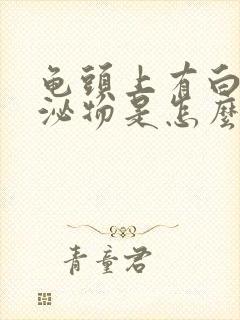 龟頭上有白
泌物是怎麼
青童君